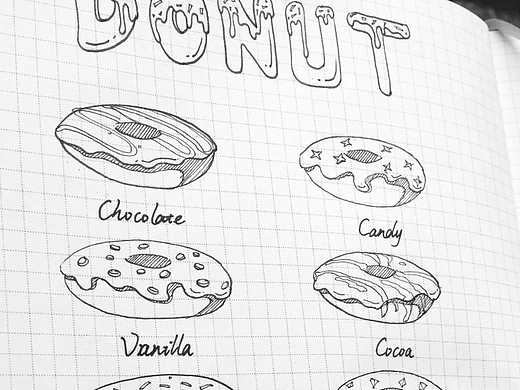 DONUT
Chocolate
Candy
Vanilla
Cocoa